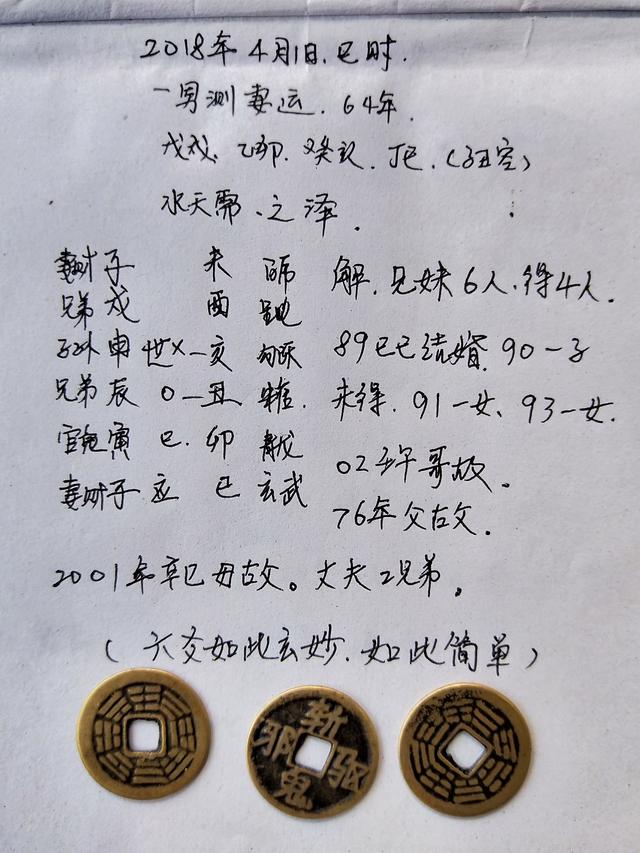 2018年4月1日.巳时.
一男测妻运.64年.
戊戌、乙卯、癸亥、丁巳.(子丑空)
水天需.之泽.
妻财子 未 白虎 解.兄妹6人.得4人.
兄弟戌 酉
子孙申 世×—亥 勾陈 89己巳结婚.90一子
兄弟辰 O—丑 朱雀 未得.91一女、93一女.
官鬼寅 巳.卯 青龙
02壬午哥故.
妻财子 应 巳 玄武
76年父故.
2001年辛巳母故。丈夫2兄弟。
(六爻如此玄妙.如此简单)
斩邪驱鬼